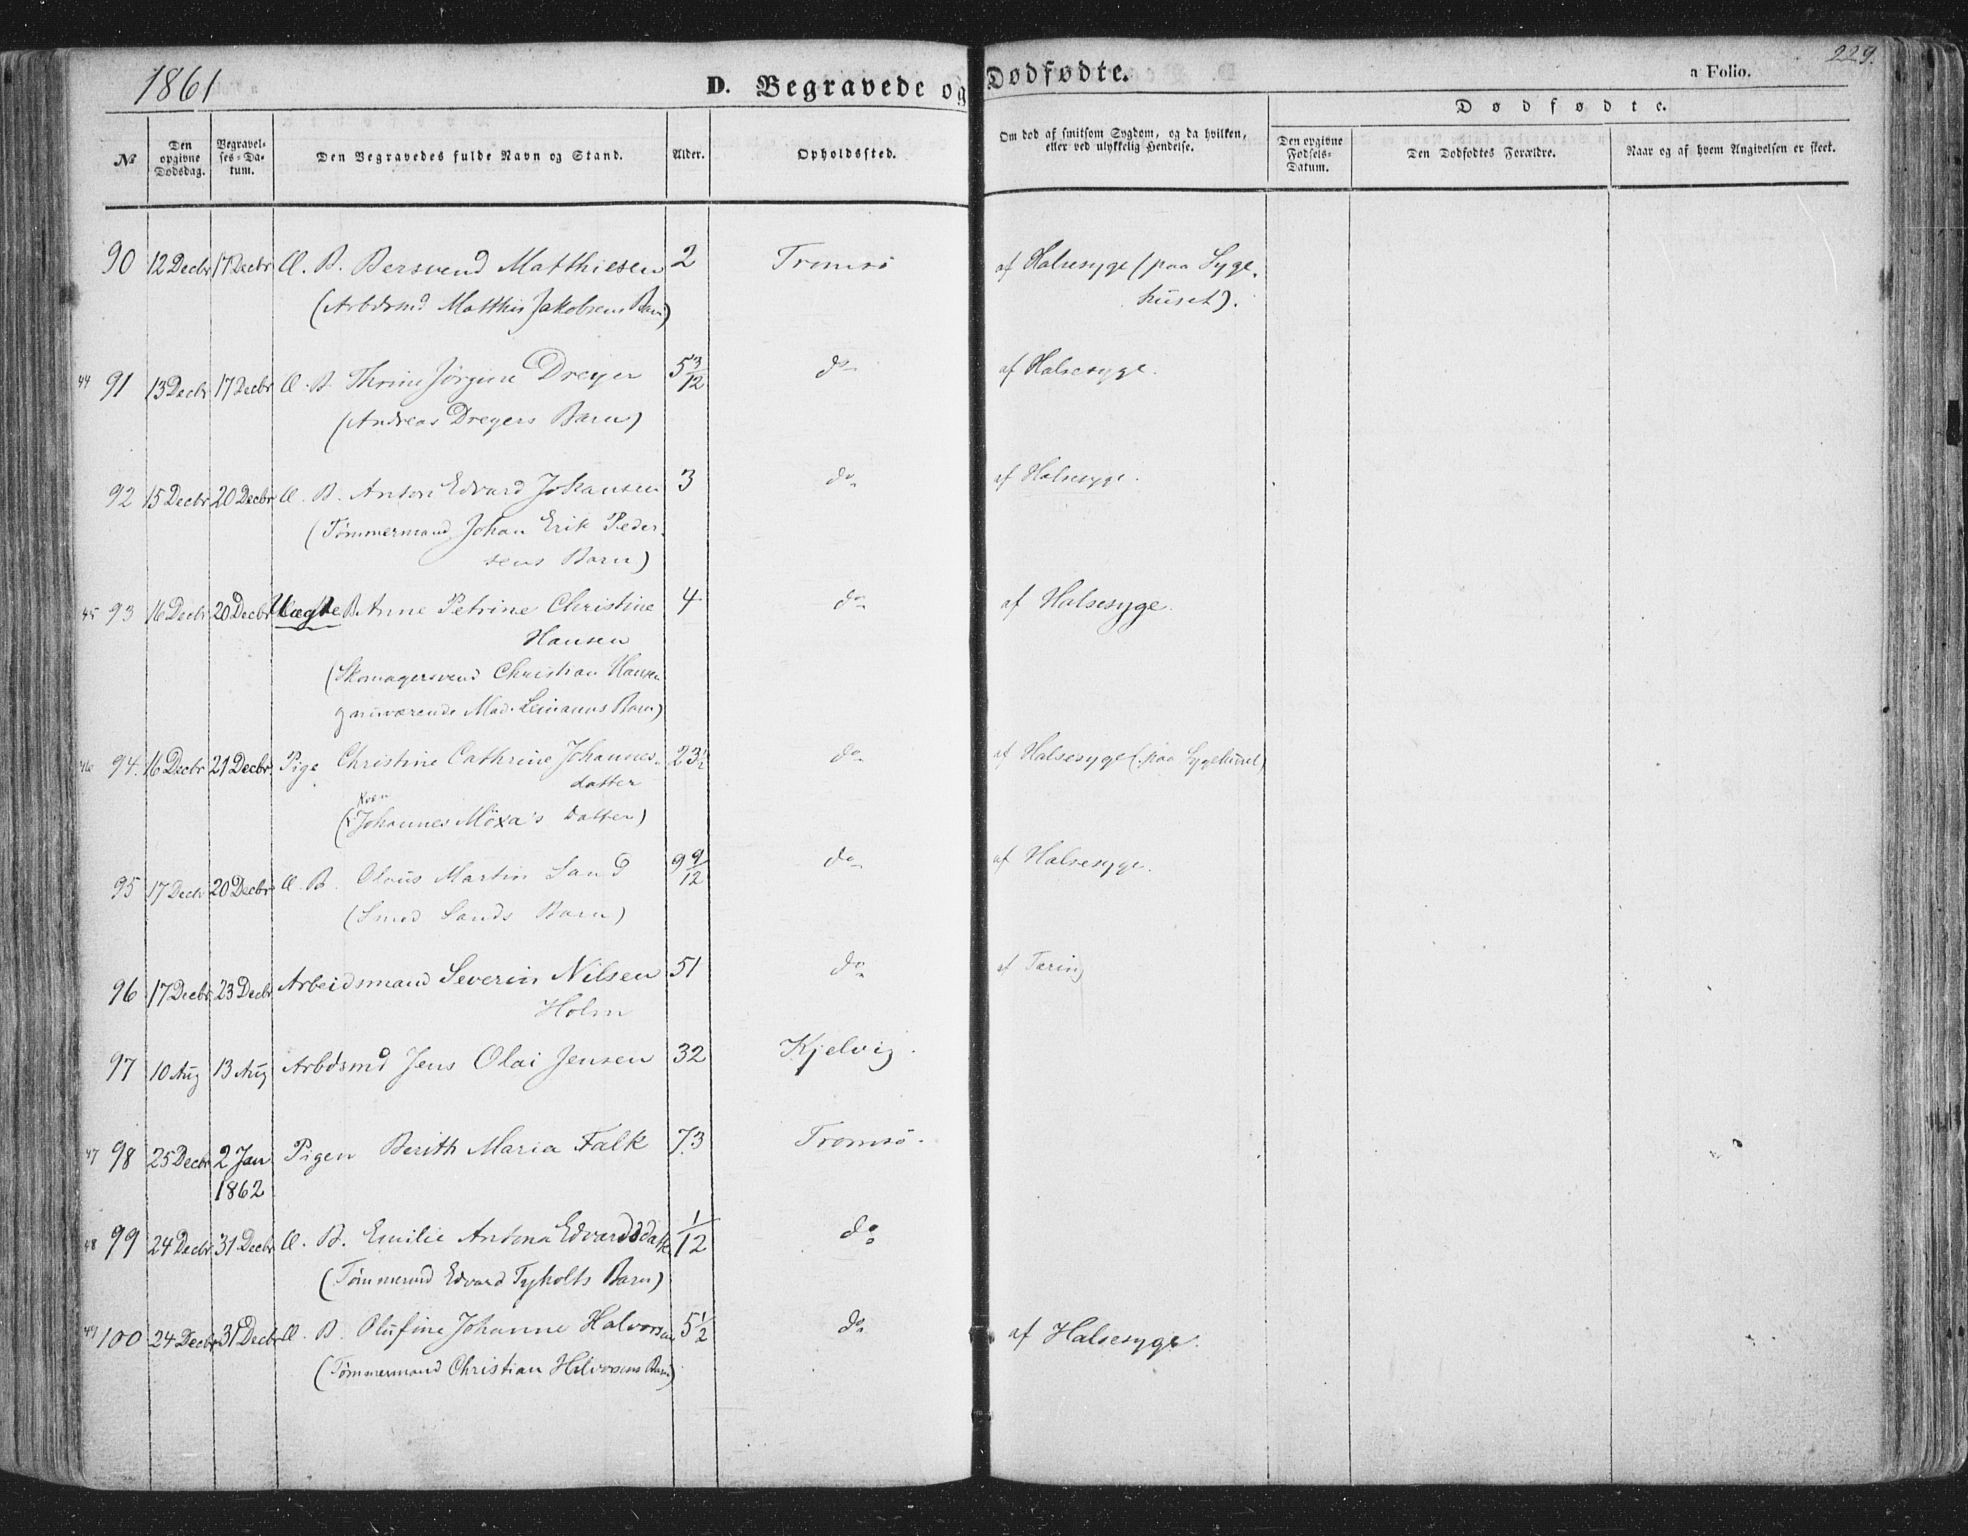 1861
D. Begravede og Dødfødte.
229.
a Folio.
No
Den opgivne Dødsdag.
Begravelses-Datum.
Den Begravedes fulde Navn og Stand.
Alder.
Opholdssted.
Om død af smitsom Sygdom, og da hvilken, eller ved ulykkelig Hendelse.
Dødfødte.
Den opgivne Fødsels-Datum.
Den Dødfødtes Forældre.
Naar og af hvem Angivelsen er skeet.
90 12 Decbr 17 Decbr Æ. B. Bersvend Matthiesen 2 Tromsø af Halsesyge (paa Syge-
(Arbdsmd Matthis Jakobsens Barn) huset).
44 91 13 Decbr 17 Decbr Æ. B. Thrine Jørgine Dreyer 5 3/12 do af Halsesyge.
(Andreas Dreyers Barn)
92 15 Decbr 20 Decbr Æ. B. Anton Edvard Johansen 3 do af Halsesyge.
(Tømmermand Johan Erik Peder-
sens Barn)
45 93 16 Decbr 20 Decbr Uægte B. Anne Petrine Christine 4 do af Halsesyge.
Hansen
(Skomagersvend Christian Hansen
Mad. Barn)
46 94. 16 Decbr 21 Decbr Pige Christine Cathrine Johannes- 23 1/2 do af Halsesyge (paa Sygehuset)
datter
Kvæn
(Johannes Möxa's Datter)
95 17 Decbr 20 Decbr Æ. B. Olaus Martin Sand 9 9/12 do af Halsesyge.
(Smed Sands Barn)
96 17 Decbr 23 Decbr Arbeidsmand Severin Nilsen 51 do af Tæring
Holm
97 10 Aug 13 Aug Arbdsmd Jens Olai Jensen 32 Kjelvig.
47 98 25 Decbr 2 Jan Pigen Berith Maria Falk 73 Tromsø.
1862
48 99 24 Decbr 31 Decbr Æ. B. Emilie Antona Edvardsdatt 1/12 do
(Tømmermd Edvard Tyholts Barn)
49 100 24 Decbr 31 Decbr Æ. B. Olufine Johanne Halvorsen 5 1/2 do af Halsesyge.
(Tømmermand Christian Halvorsens Barn)